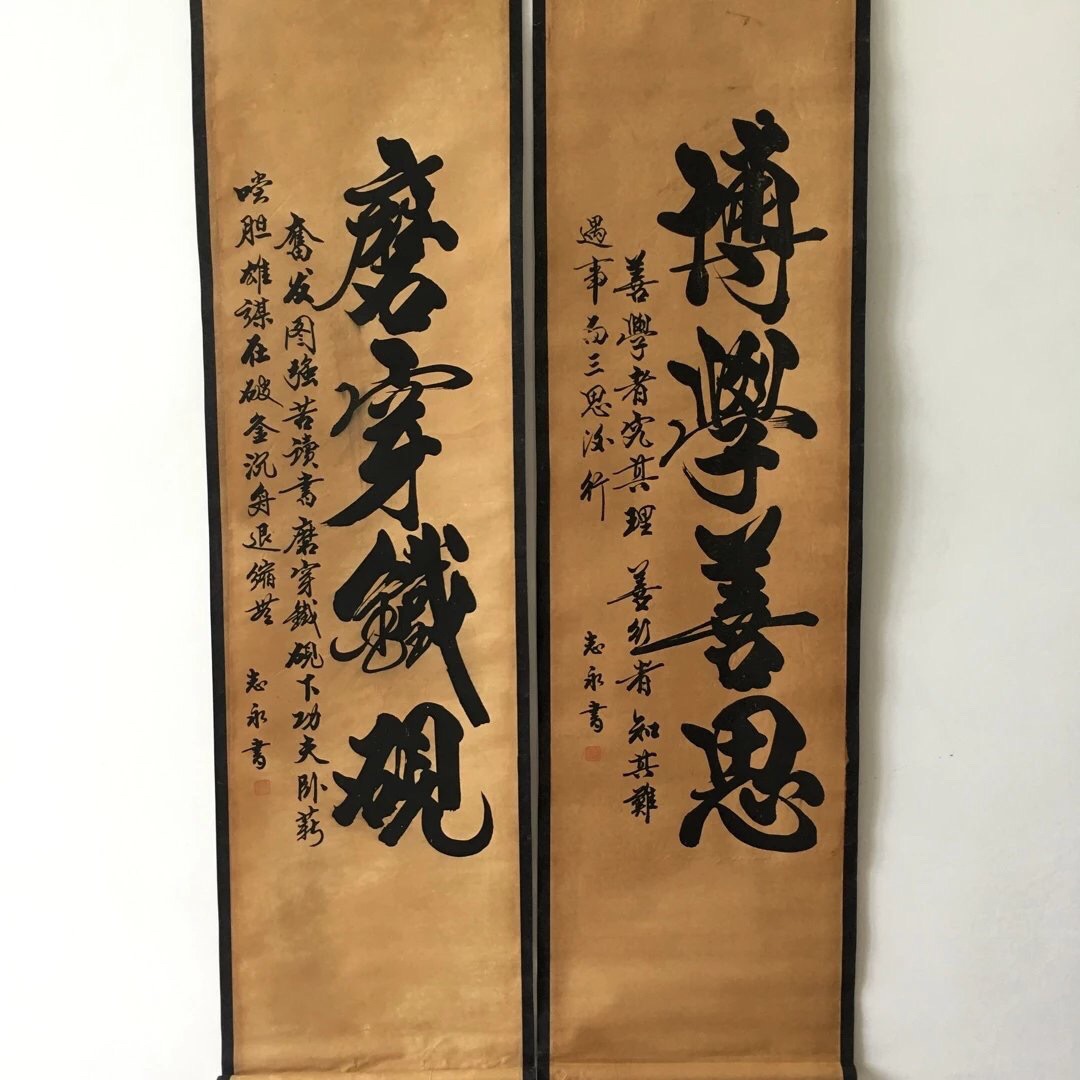 博學善思
善學者究其理 善行者知其難
遇事而三思後行
志永書
磨穿鐵硯
奮发图強苦讀書磨穿鐵硯下功夫卧薪
嘗胆雄謀在破釜沉舟退縮無
志永書